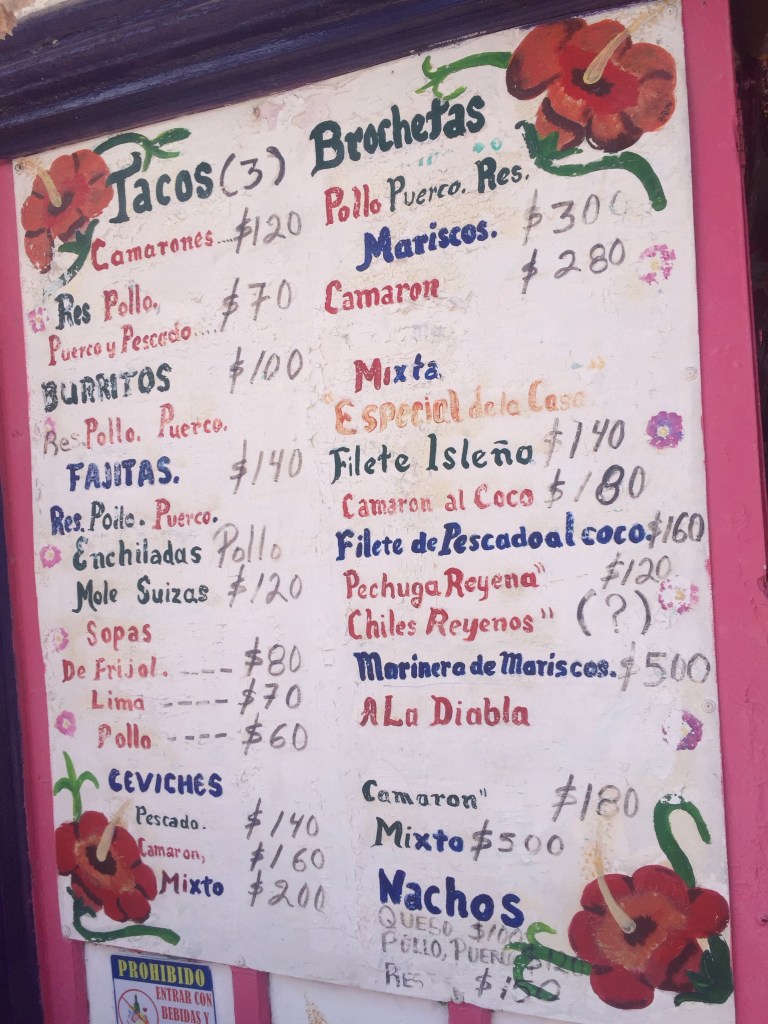 Tacos (3)
Camarones.... $120
Res Pollo. $70
Puerco y Pescado....
BURRITOS $100
Res Pollo. Puerco.
FAJITAS. $140
Res. Pollo. Puerco.
Enchiladas Pollo
Mole Suizas $120
Sopas
De Frijol. ---- $80
Lima ----- $70
Pollo ---- $60
CEVICHES
Pescado. $140
Camaron, $160
Mixto $200
Brochetas
Pollo Puerco. Res.
Mariscos. $300
Camaron $280
Mixta
"Especial de la Casa
Filete Isleño $140
Camaron al Coco $180
Filete de Pescado al coco. $160
Pechuga Reyena" $120
Chiles Reyenos" (?)
Marinera de Mariscos. $500
A La Diabla
Camaron" $180
Mixto $500
Nachos
QUESO $100
POLLO, PUERCO $120
RES $150
PROHIBIDO
ENTRAR CON
BEBIDAS Y